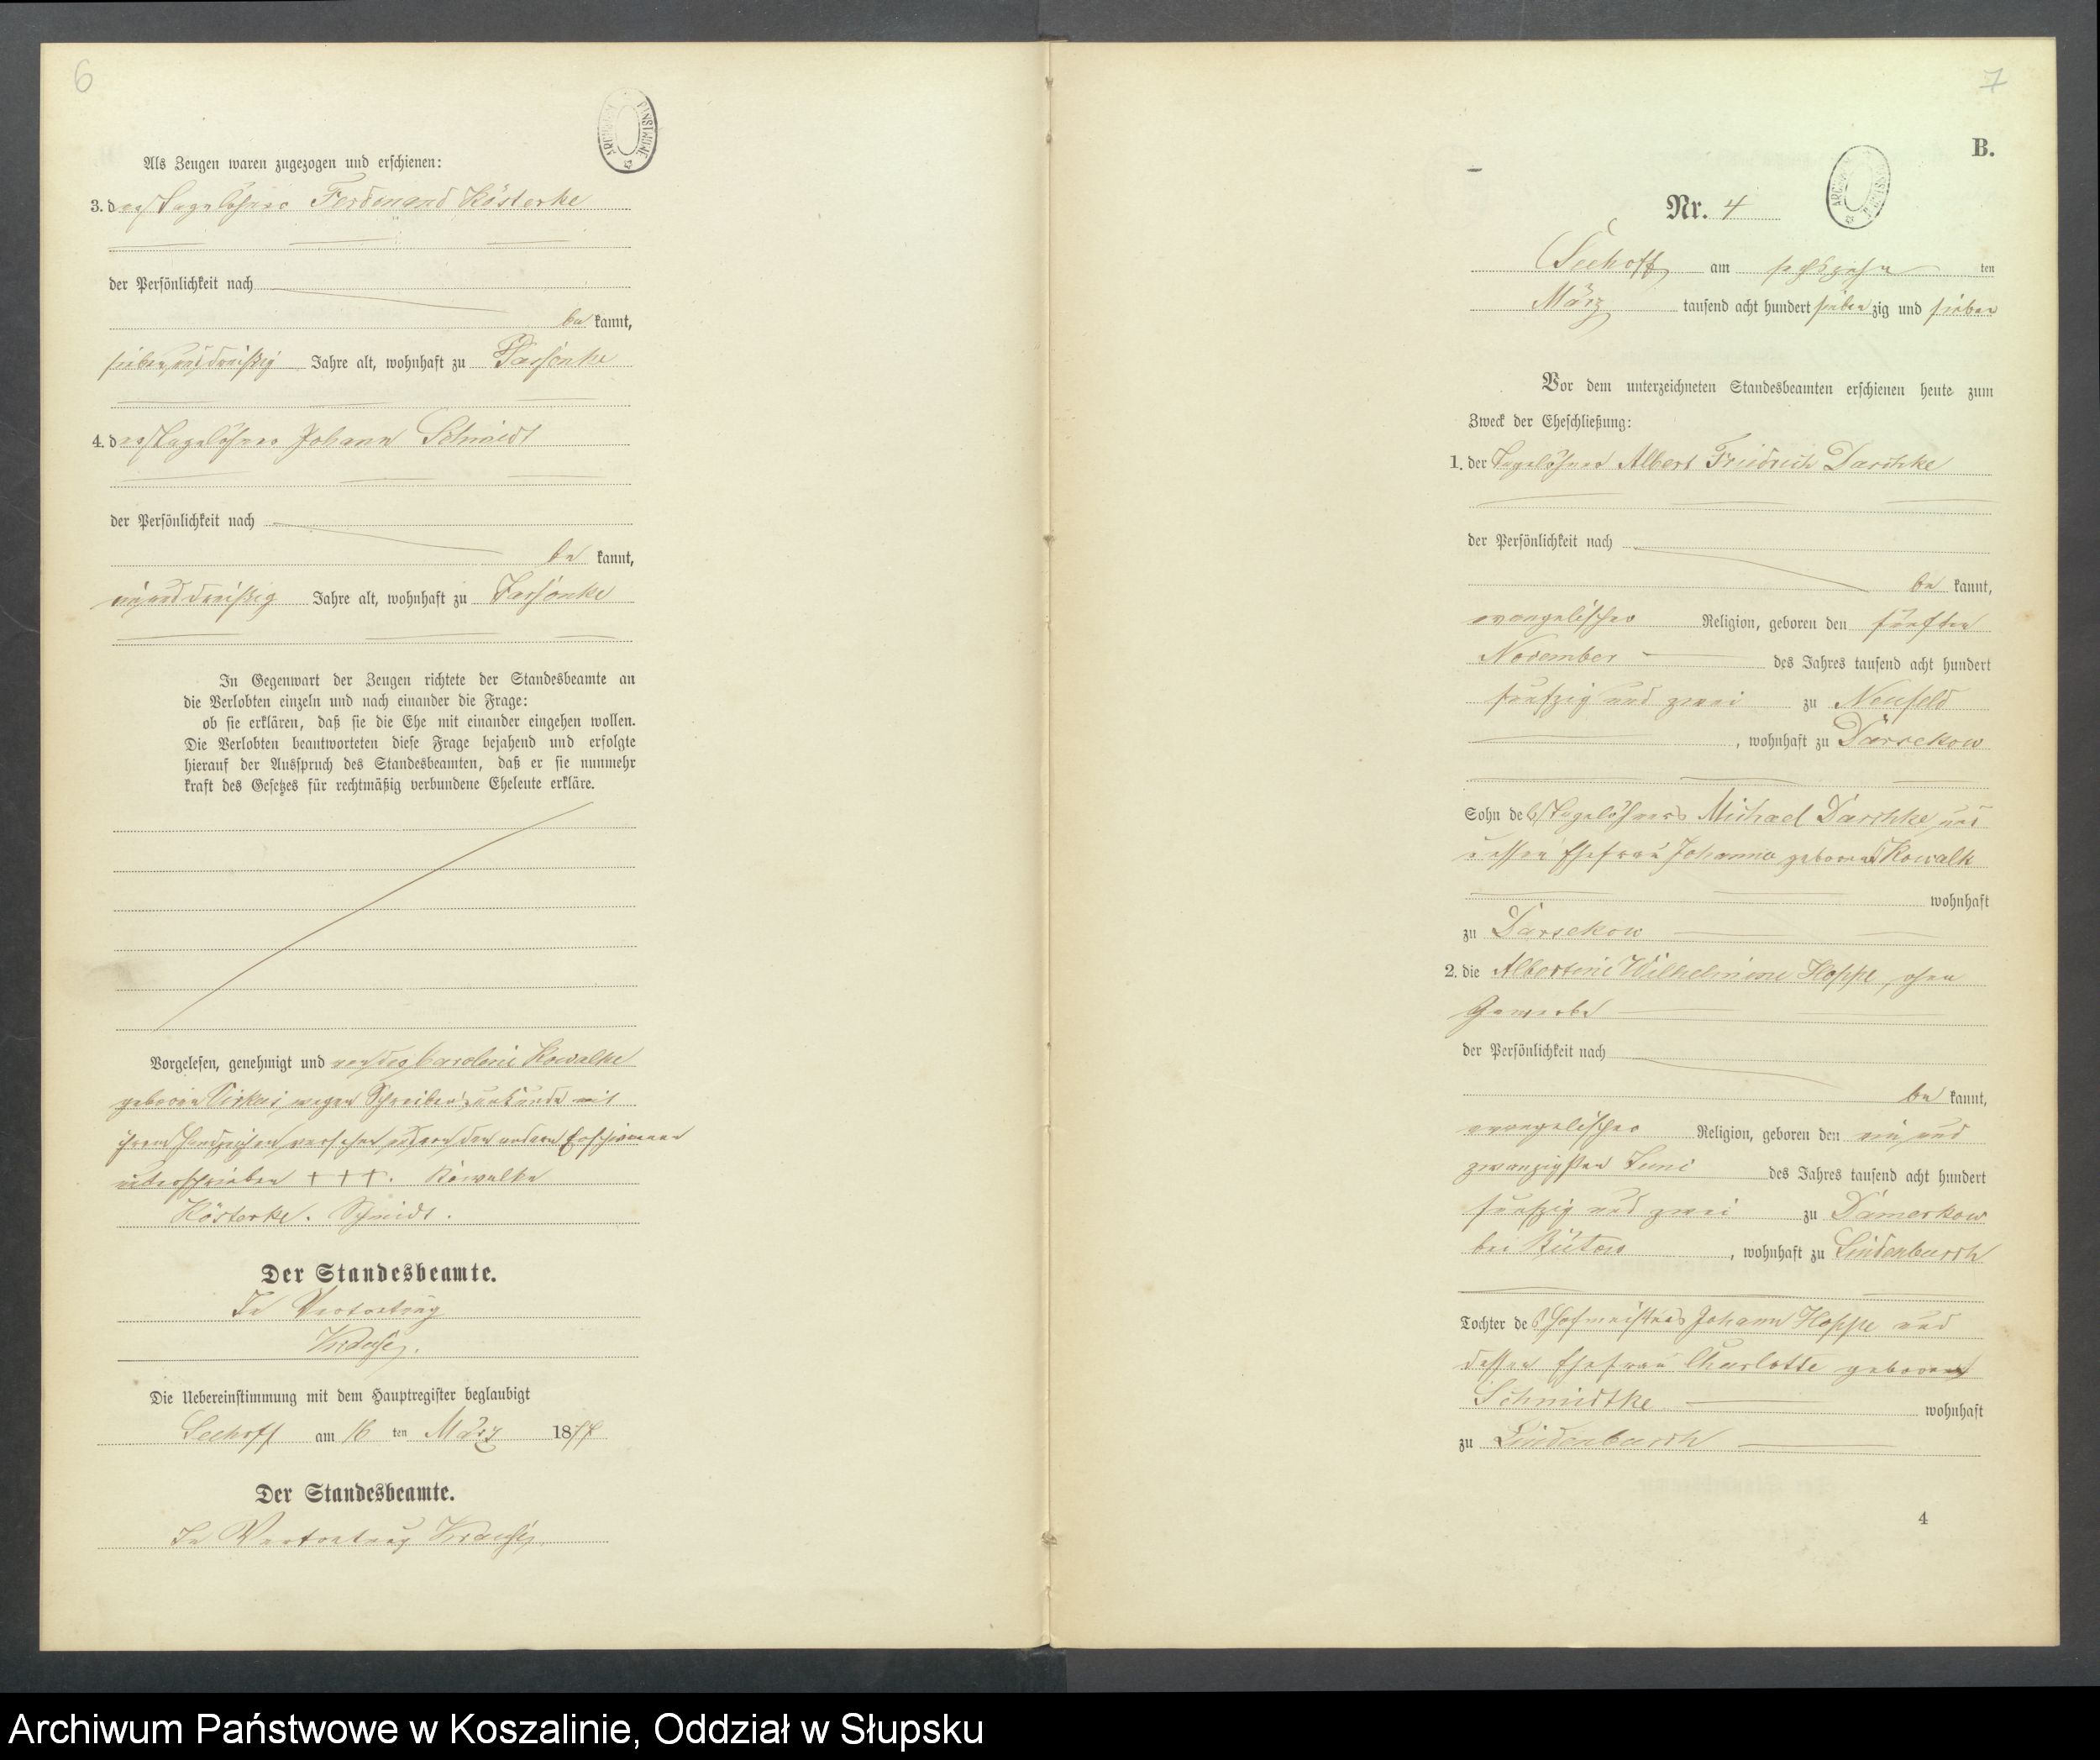 6
Als Zeugen waren zugezogen und erschienen:
3. der Tagelöhner Ferdinand Kösterke
der Persönlichkeit nach
be kannt,
sieben und dreißig Jahre alt, wohnhaft zu
4. der Tagelöhner Johann Schmidt
der Persönlichkeit nach
be kannt,
ein und dreißig Jahre alt, wohnhaft zu
In Gegenwart der Zeugen richtete der Standesbeamte an
die Verlobten einzeln und nach einander die Frage:
ob sie erklären, daß sie die Ehe mit einander eingehen wollen.
Die Verlobten beantworteten diese Frage bejahend und erfolgte
hierauf der Ausspruch des Standesbeamten, daß er sie nunmehr
kraft des Gesetzes für rechtmäßig verbundene Eheleute erkläre.
Vorgelesen, genehmigt und von der Caroline Kowalke
geborene wegen Schreibensunkunde mit
ihrem Handzeichen versehen von den andern Erschienenen
unterschrieben +++. Kowalke
Kösterke. Schmidt.
Der Standesbeamte.
In Vertretung
Krause.
Die Uebereinstimmung mit dem Hauptregister beglaubigt
Seehoff am 16 ten März 1877
Der Standesbeamte.
In Vertretung Krause
7
B.
Nr. 4
Seehoff am sechszehn ten
März tausend acht hundert siebenzig und sieben
Vor dem unterzeichneten Standesbeamten erschienen heute zum
Zweck der Eheschließung:
1. der Tagelöhner Albert Friedrich Darschke
der Persönlichkeit nach
be kannt,
evangelischer Religion, geboren den fünften
November des Jahres tausend acht hundert
fünfzig und zwei zu Neufeld
, wohnhaft zu Darsekow
Sohn des Tagelöhners Michael Darschke und
dessen Ehefrau Johanna geborene Kowalk
wohnhaft
zu Darsekow
2. die Albertine Wilhelmine Hoppe, ohne
Gewerbe
der Persönlichkeit nach
be kannt,
evangelischer Religion, geboren den ein und
zwanzigsten Juni des Jahres tausend acht hundert
fünfzig und zwei zu Damerkow
bei Bütow, wohnhaft zu Lindenbusch
Tochter des Hofmeisters Johann Hoppe und
dessen Ehefrau Charlotte geborene
Schmidtke wohnhaft
zu Lindenbusch
4
Archiwum Państwowe w Koszalinie, Oddział w Słupsku